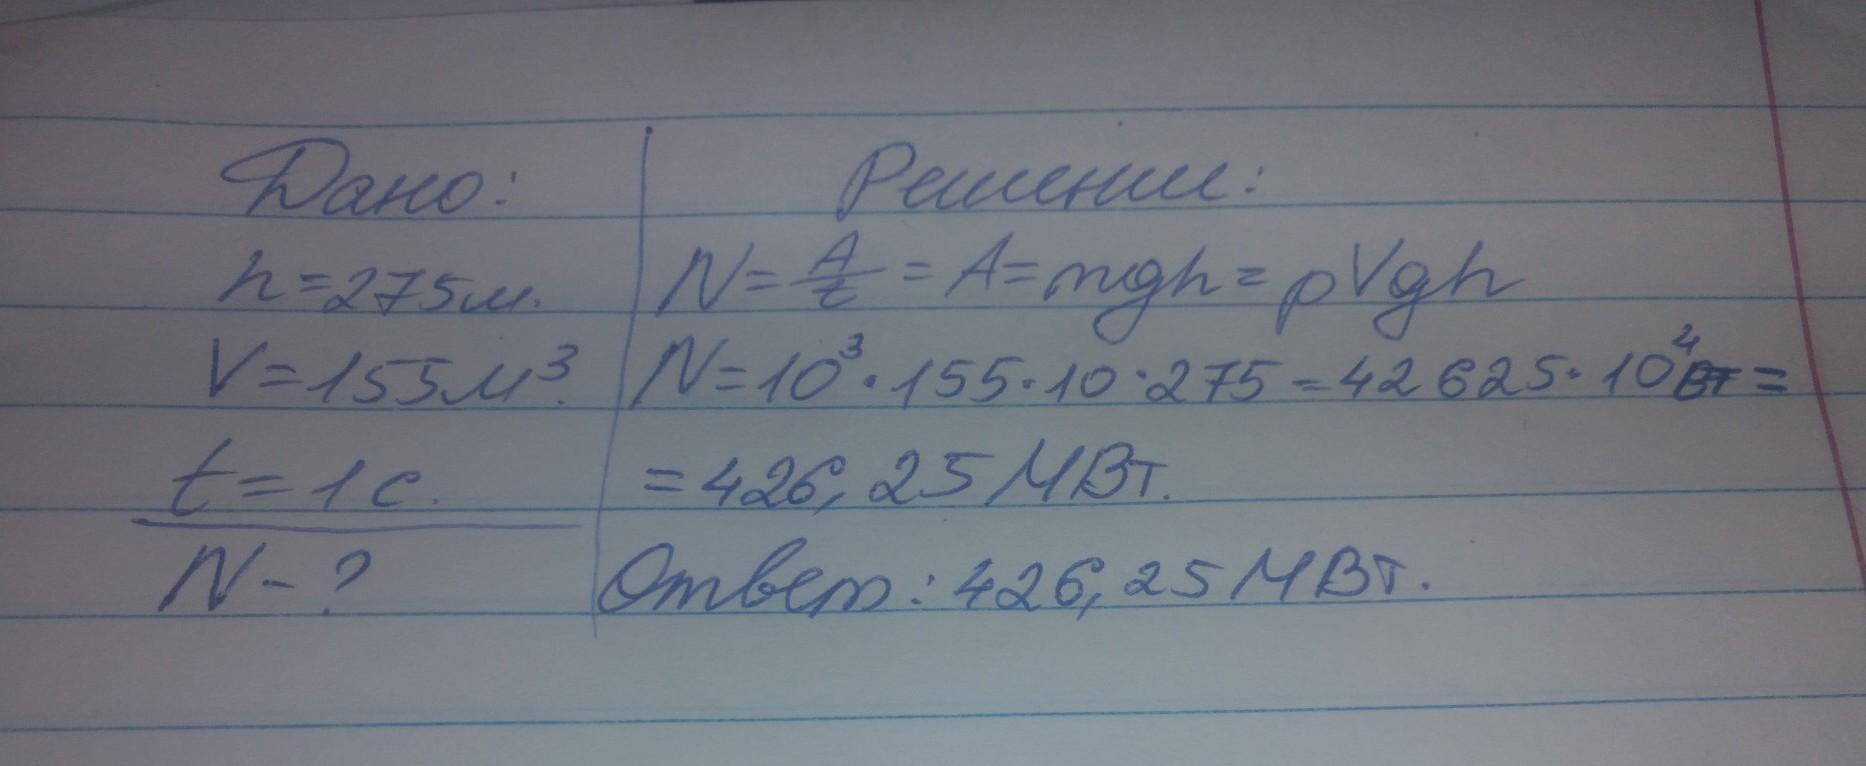 Дано:
h=275м.
V=155м³.
t=1с.
N-?
Решение:
N=A/t=A=mgh=ρVgh
N=10³·155·10·275=42625·10⁴Вт=
=426,25МВт.
Ответ: 426,25МВт.